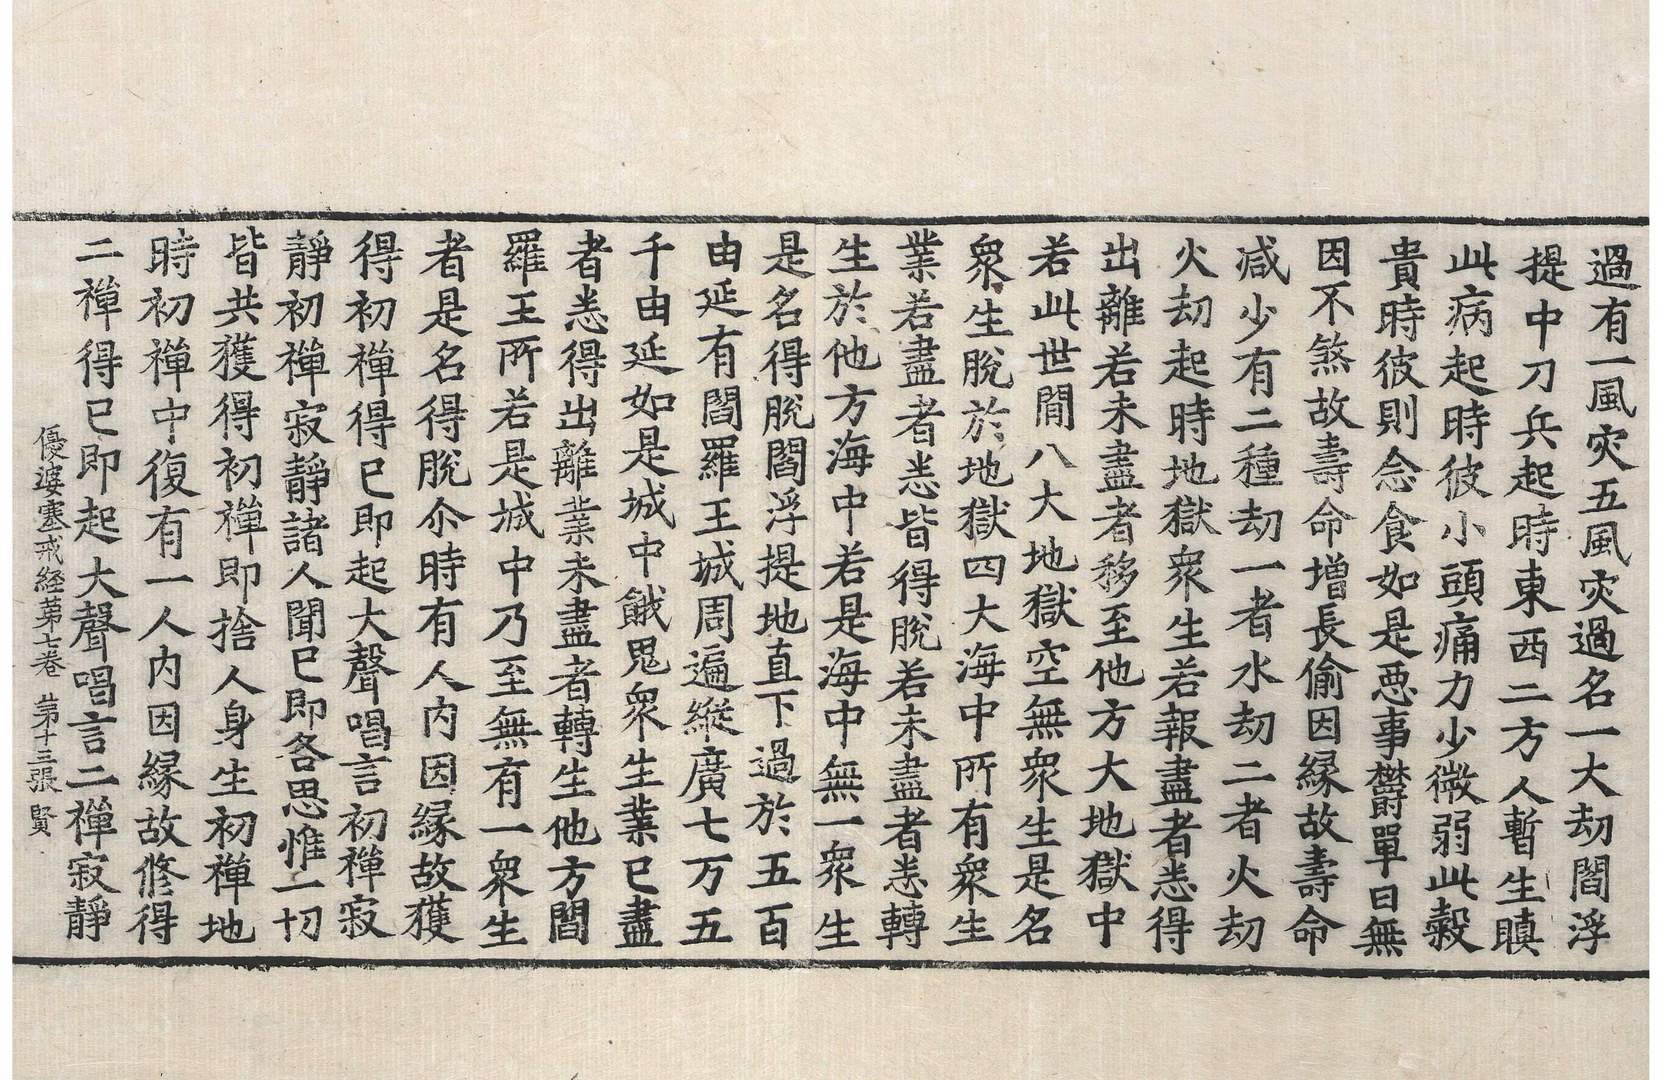 過有一風灾五風灾過名一大劫閻浮
提中刀兵起時東西二方人暫生瞋
此病起時彼小頭痛力少微弱此糓
貴時彼則念食如是惡事欝單曰無
因不煞故壽命增長偷因緣故壽命
减少有二種劫一者水劫二者火劫
火劫起時地獄衆生若報盡者悉得
出離若未盡者移至他方大地獄中
若此世間八大地獄空無衆生是名
衆生脫於地獄四大海中所有衆生
業若盡者悉皆得脫若未盡者悉轉
生於他方海中若是海中無一衆生
是名得脫閻浮提地直下過於五百
由延有閻羅王城周遍縱廣七万五
千由延如是城中餓鬼衆生業已盡
者悉得出離業未盡者轉生他方閻
羅王所若是城中乃至無有一衆生
者是名得脫尒時有人內因緣故獲
得初禪得已即起大聲唱言初禪寂
靜初禪寂靜諸人聞已即各思惟一切
皆共獲得初禪即捨人身生初禪地
時初禪中復有一人內因緣故修得
二禪得已即起大聲唱言二禪寂靜
優婆塞戒経苐七卷 苐十三張 賢